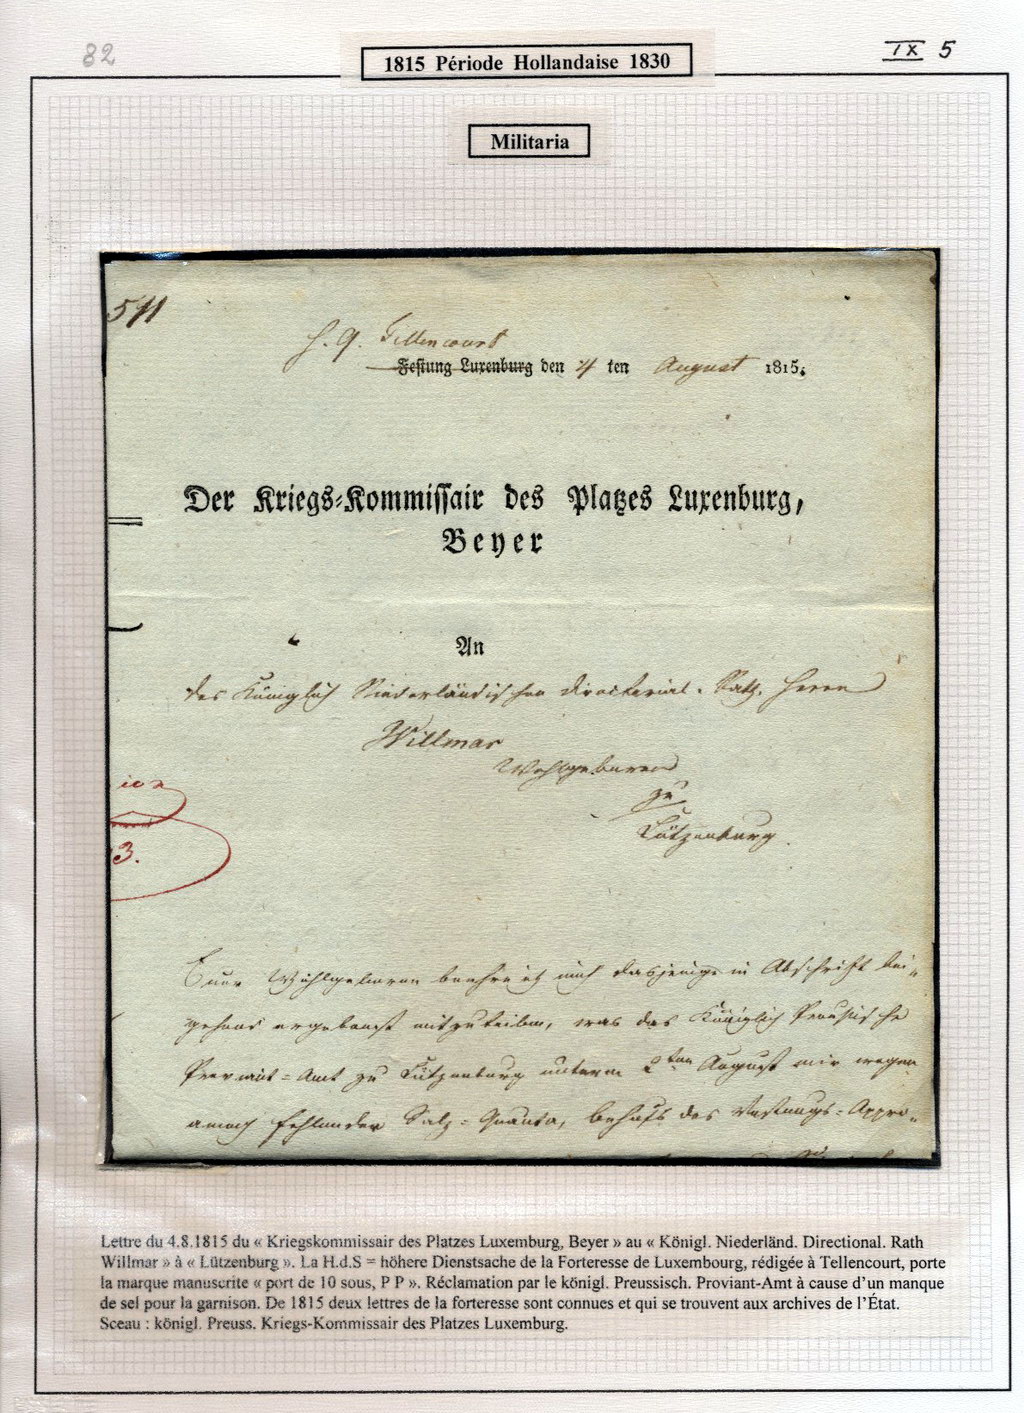 82
IX 5
1815 Période Hollandaise 1830
Militaria
591
H. Q. Tellencourt
Festung Luxenburg den 4 ten August 1815.
Der Kriegs-Kommissair des Platzes Luxenburg,
Beyer
An
des Königlich Niederländischen Directorial-Rath, Herrn
Willmar
Wohlgeboren
zu
Lützenburg.
3.
Euer Wohlgeboren beehre ich mich dasjenige in Abschrift bei-
gehend ergebenst mitzuteilen, was das Königlich Preusische
Proviant-Amt zu Lützenburg unterm 2ten August mir wegen
annoch fehlender Salz-Quanta, behufs des Vestungs-Appro-
Lettre du 4.8.1815 du « Kriegskommissair des Platzes Luxemburg, Beyer » au « Königl. Niederländ. Directional. Rath
Willmar » à « Lützenburg ». La H.d.S = höhere Dienstsache de la Forteresse de Luxembourg, rédigée à Tellencourt, porte
la marque manuscrite « port de 10 sous, P P ». Réclamation par le königl. Preussisch. Proviant-Amt à cause d'un manque
de sel pour la garnison. De 1815 deux lettres de la forteresse sont connues et qui se trouvent aux archives de l'État.
Sceau : königl. Preuss. Kriegs-Kommissair des Platzes Luxemburg.